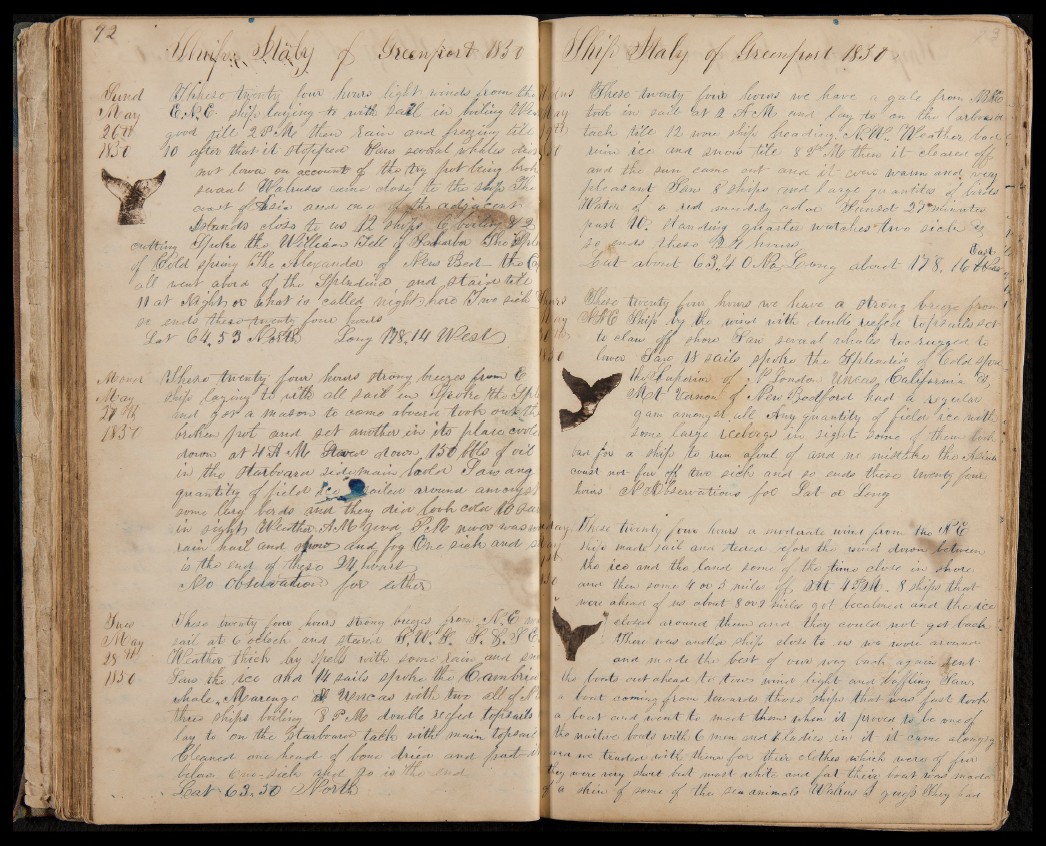 92
Ship Italy of Greenport 1850
Sund These twenty four hours light winds from the
May E.N.E. ship laying to with sail in boiling
26th good till 2 P M then rain and freezing till
1850 10 after that it stopped Saw several whales
not lower on account of the try pot being
several Walruses came close to the ship The
coast of Asia and one of the adjacent
Islands close to us 12 ships 6 boiling & 2
cutting Spoke the William Tell of
of Cold Spring The Alexander of New Bed the
all went abord of the Splendid and staid till
11 at Night or what is called night here Two sick
so ends these twenty four hours
Lat 64,53 North Long 178.14 West
Mond These twenty four hours strong breezes from E
May ship laying to with all sail in Spoke the
27th and got a mason to come aboard took out the
1850 broken pot and set another in its place
down at 4 A M down 150 bbls of oil
in the starboard side main Saw any
quantity of field ice sailed around amongst
some large and they did look cold 10
in sight Weather A M good P M
rain hail and snow and fog One sick and
is the end of these 24 hours
No Observation for either
Tues These twenty four hours strong breezes from N.E
May sail at 6 oclock and
28th Weather thick by spells with some rain and
1850 Saw the ice and 14 sails spoke the Cambria
whale, Marengo & Uncas with two all of
three ships boiling 8 P M double reefed topsails
lay to on the Starboard tack with main topsail
Cleaned one head of bone dried and part
below One sick and so is the end
Lat 63.50 North
Ship Italy of Greenport 1850
These twenty four hours we have a gale from
took in sail at 2 A M and lay to on the larboard
tack till 12 wore ship heading N.W. Weather bad
rain ice and snow till 8 P M then it cleared off
and the sun came out and it was warm and very
pleasant Saw 8 ships and large quantites of birds
Water of a red muddy color Sunset 27 minutes
past 10. Standing quarter watches two sick &
so ends these 24 hours
Lat about 63,40 N Long about 178,16
East
These twenty four hours we have a strong breeze from
N.N.E Ship by the wind with double reefed topsails set
to claw off shore Saw several whales too rugged to
lower Saw 18 sails spoke the Splendid of Cold
the Superior of N London Uncas, California &
Mt Vernon of New Bedford had a regular
gam amongst all Any quantity of field ice with
some large icebergs in sight some of them
bad for a ship to run afoul of and no mistake the Asian
coast not far off two sick and so ends these twenty four
hours No Observations for Lat or Long
These twenty four hours a moderate wind from the N E
ship made sail and steered before the wind down between
the ice and the land some of the time close in shore
and then some 4 or 5 miles off At 4 P M. 8 ships that
were ahead of us about 8 or 9 miles got becalmed and the ice
closed around them and they could not get back
There was another ship close to us we wore around
and made the best of our way back again sent
the boats out ahead to tow wind light and baffling Saw
a boat coming from towards those ships that was fast took
a boat and went to meet them when it proved to be one of
the native boats with 6 men and 4 ladies in it it came alongside
and we traded with them for their clothes which were of fur
they were very short but most white and fat their boat was made
of a skin of some of the sea animals Walrus I guess They had